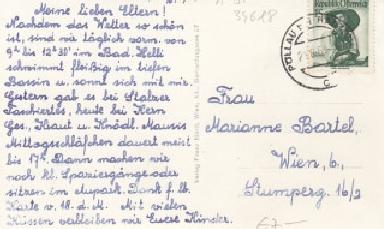 Meine lieben Eltern!
Nachdem das Wetter so schön
ist, sind wir täglich vorm. von
9h bis 12h30 im Bad. Helli
schwimmt fleißig im tiefen
Bassin u. sonnt sich mit mir.
Gestern gab es bei
Faschiertes, heute bei Kern
Ges., Kraut u. Knödl. Mausis
Mittagsschläfchen dauert meist
bis 17h. Dann machen wir
noch kl. Spaziergänge oder
sitzen im Dank f. lb.
Karte v. 18. d. M. Mit vielen
Küssen verbleiben wir Euere Kinder.
39618
PÖLLAU
Republik Österreich
Frau
Marianne Bartel,
Wien, 6.,
Stumperg. 16/2
67.-